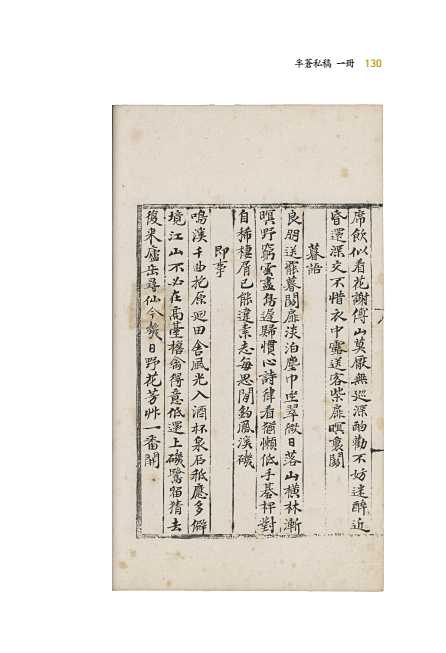 半蒼私稿 一冊 130
席飲似看花謝傅山莫厭無巡深酌勸不妨迷醉近
昏還深交不惜衣中露送客柴扉暝裏關
暮語
良朋送罷暮關扉淡泊塵巾坐翠微日落山橫林漸
暝野窮雲盡鳥遲歸慣心詩律看猶懶低手碁枰對
自稀棲屑已能違素志每思閑釣鳳溪磯
即事
鳴溪千曲抱原廻田舍風光入酒杯泉石秪應多僻
境江山不必在高臺格禽得意低還上磯鷺宿猜去
復來廬岳尋仙今幾日野花芳草一番開